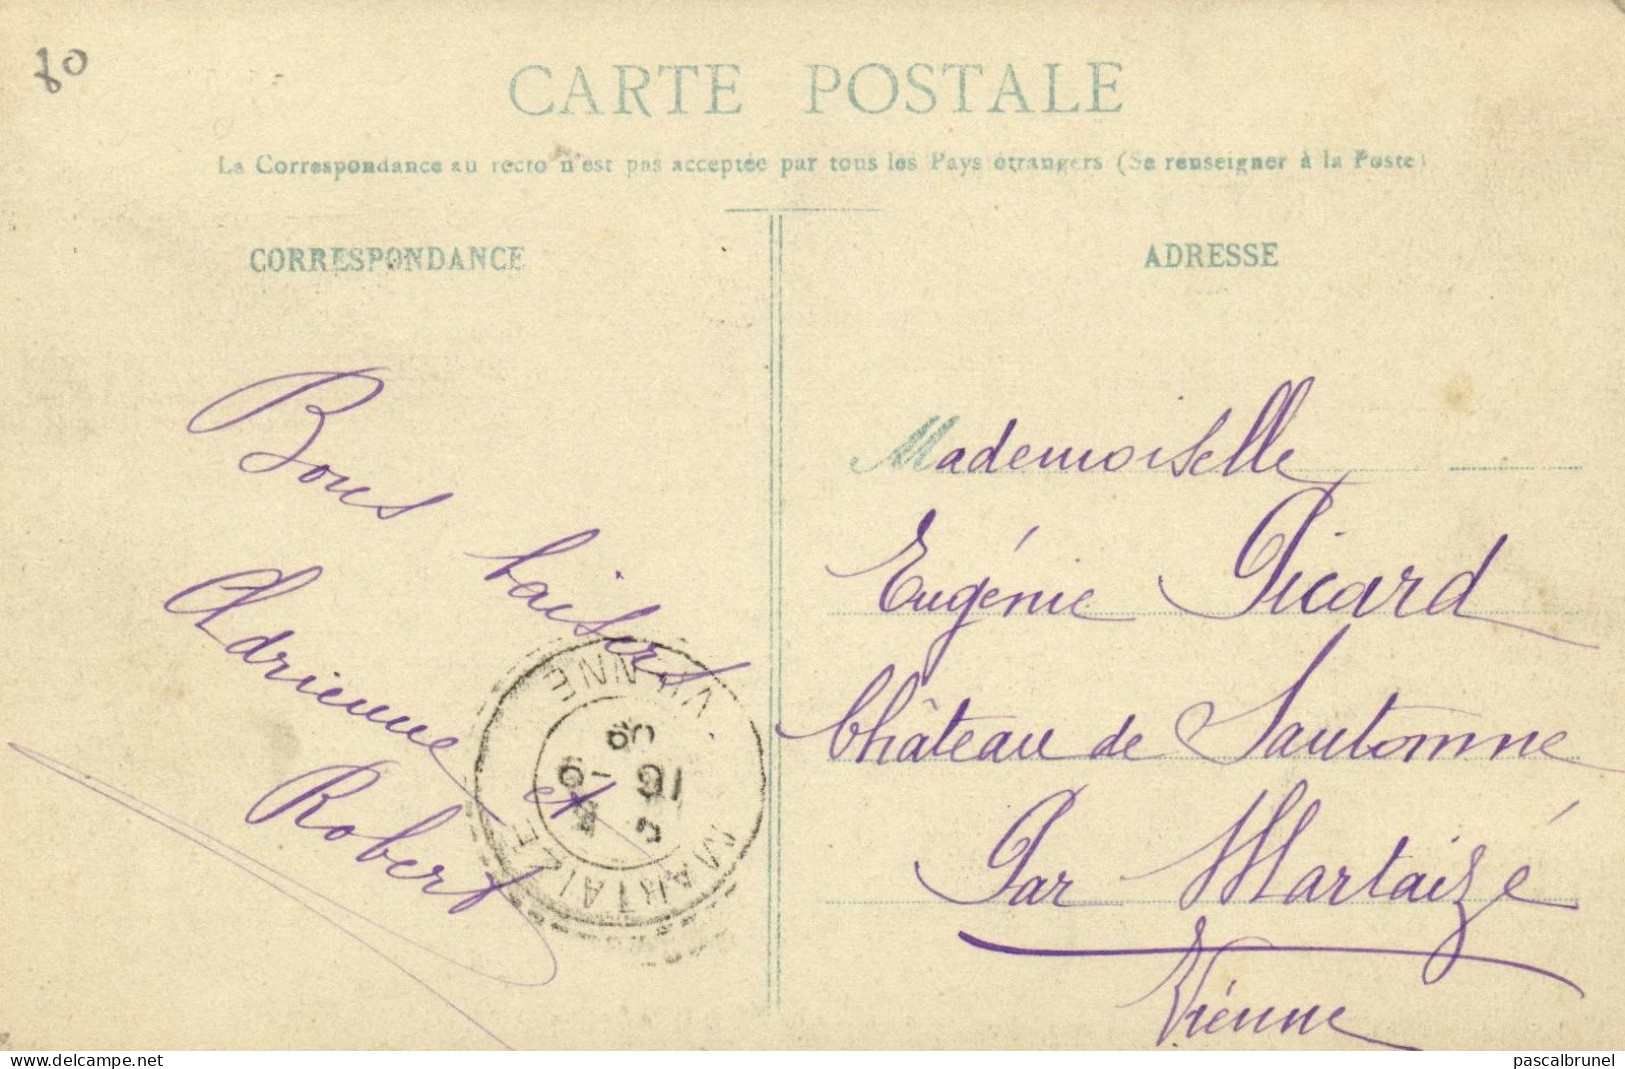 80
CARTE POSTALE
La Correspondance au recto n'est pas acceptée par tous les Pays étrangers (Se renseigner à la Poste)
CORRESPONDANCE
Bons baisers
Adrienne et
Robert
MARTAIZÉ
VIENNE
09
ADRESSE
Mademoiselle
Eugénie Picard
Château de Sautonne
Par Martaizé
Vienne
www.delcampe.net
pascalbrunel